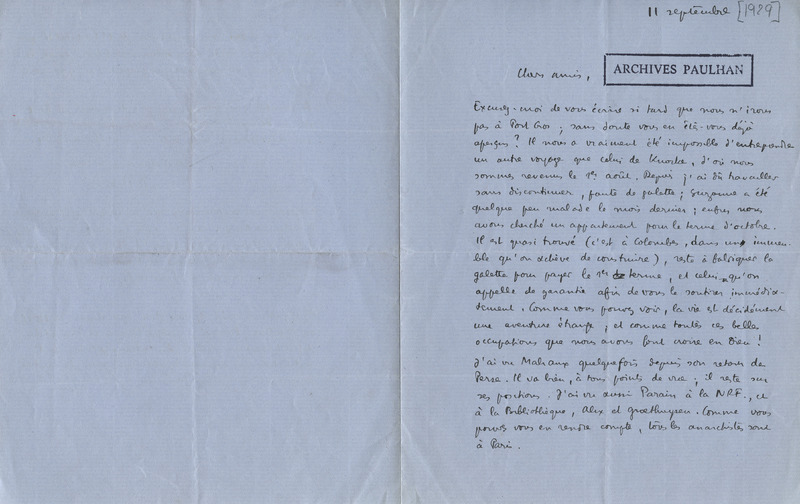 11 septembre [1929]
ARCHIVES PAULHAN
Chers amis,
Excusez-moi de vous écrire si tard que nous n'irons
pas à Port Cros ; sans doute vous en êtes-vous déjà
aperçus ? Il nous a vraiment été impossible d'entreprendre
un autre voyage que celui de Knocke, d'où nous
sommes revenus le 1er août. Depuis j'ai dû travailler
sans discontinuer, faute de galette ; Suzanne a été
quelque peu malade le mois dernier ; enfin nous
avons cherché un appartement pour le terme d'octobre.
Il est quasi trouvé (c'est à Colombes, dans un immeu-
ble qu'on achève de construire), reste à fabriquer la
galette pour payer le 1er terme, et celui qu'on
appelle de garantie afin de vous le soutirer immédia-
tement. Comme vous pouvez voir, la vie est décidément
une aventure étrange ; et comme toutes ces belles
occupations que nous avons font croire en Dieu !
J'ai vu Malraux quelquefois depuis son retour de
Perse. Il va bien, à tous points de vue ; il reste sur
ses positions. J'ai vu aussi Parain à la NRF, et
à la Bibliothèque, Alix et Groethuysen. Comme vous
pouvez vous en rendre compte, tous les anarchistes sont
à Paris.